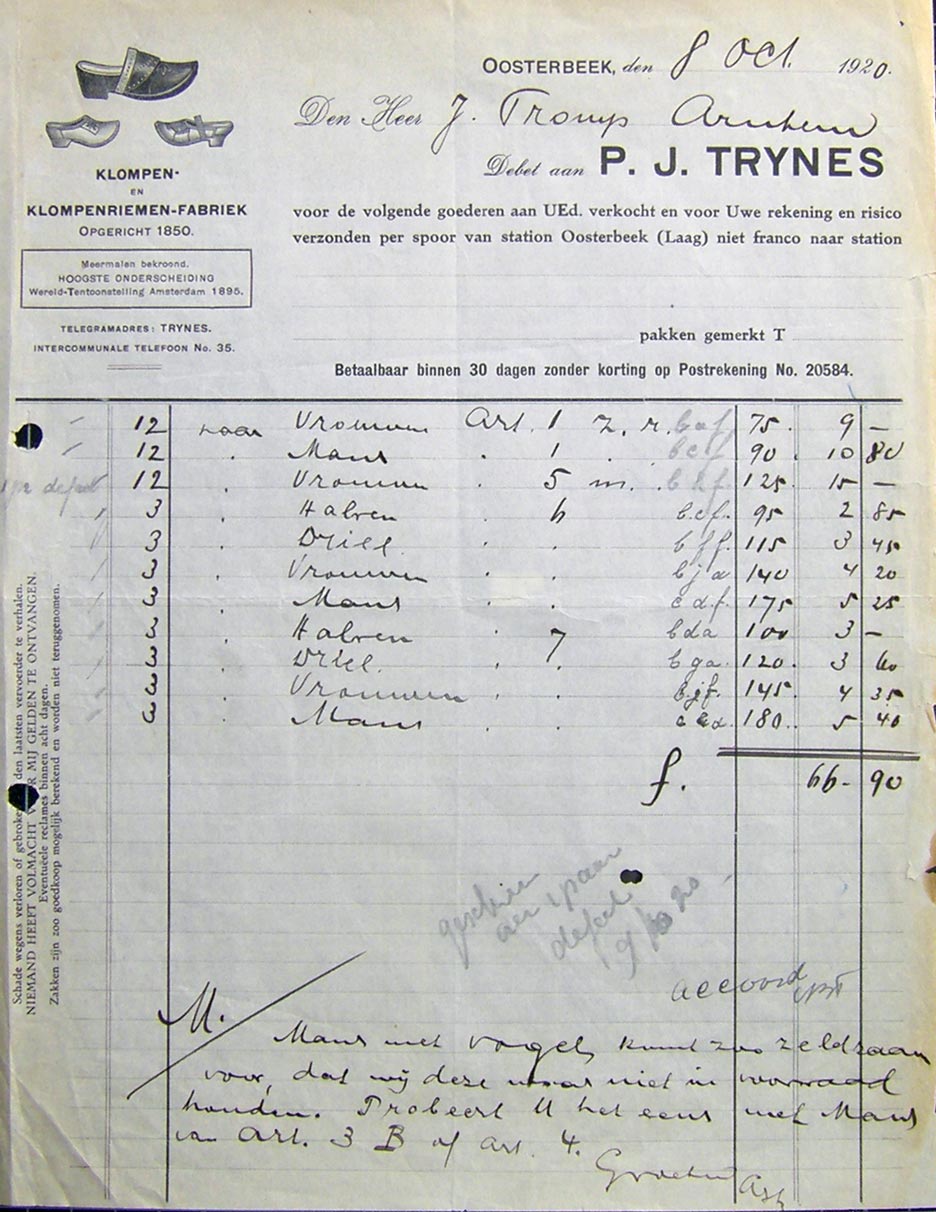 OOSTERBEEK, den 8 Oct. 1920.
Den Heer J. Tromp Arnhem
Debet aan P. J. TRYNES
KLOMPEN-
EN
KLOMPENRIEMEN-FABRIEK
OPGERICHT 1850.
Meermalen bekroond.
HOOGSTE ONDERSCHEIDING
Wereld-Tentoonstelling Amsterdam 1895.
TELEGRAMADRES: TRYNES.
INTERCOMMUNALE TELEFOON No. 35.
voor de volgende goederen aan UEd. verkocht en voor Uwe rekening en risico
verzonden per spoor van station Oosterbeek (Laag) niet franco naar station
pakken gemerkt T
Betaalbaar binnen 30 dagen zonder korting op Postrekening No. 20584.
12 paar Vrouwen Art. 1 z. r. b a f. 75. 9 —
12 " Mans " 1 " 90. 10 80
defect 12 " Vrouwen 5 m. 125. 15 —
3 " Halven " 6 b e f. 95 2 85
3 " Driel. " " b f f. 115 3 45
3 " Vrouwen " " b j a 140 4 20
3 " Mans " " c d f. 175 5 25
3 " Halven " 7 b d a 100 3 —
3 " Driel. " " b g a. 120. 3 60
3 " Vrouwen " " b j f. 145. 4 35
3 " Mans " " 180. 5 40
f. 66 - 90
geschreven
1 paar
defect
accoord
M.
Mans met vogels komt zoo zeldzaam
voor, dat wij deze maar niet in voorraad
houden. Probeert U het eens met Mans
van Art. 3 B of art. 4.
Groetend
Schade wegens verloren of gebroken den laatsten vervoerder te verhalen.
NIEMAND HEEFT VOLMACHT VOOR MIJ GELDEN TE ONTVANGEN.
Eventuëele reclames binnen acht dagen.
Zakken zijn zoo goedkoop mogelijk berekend en worden niet teruggenomen.